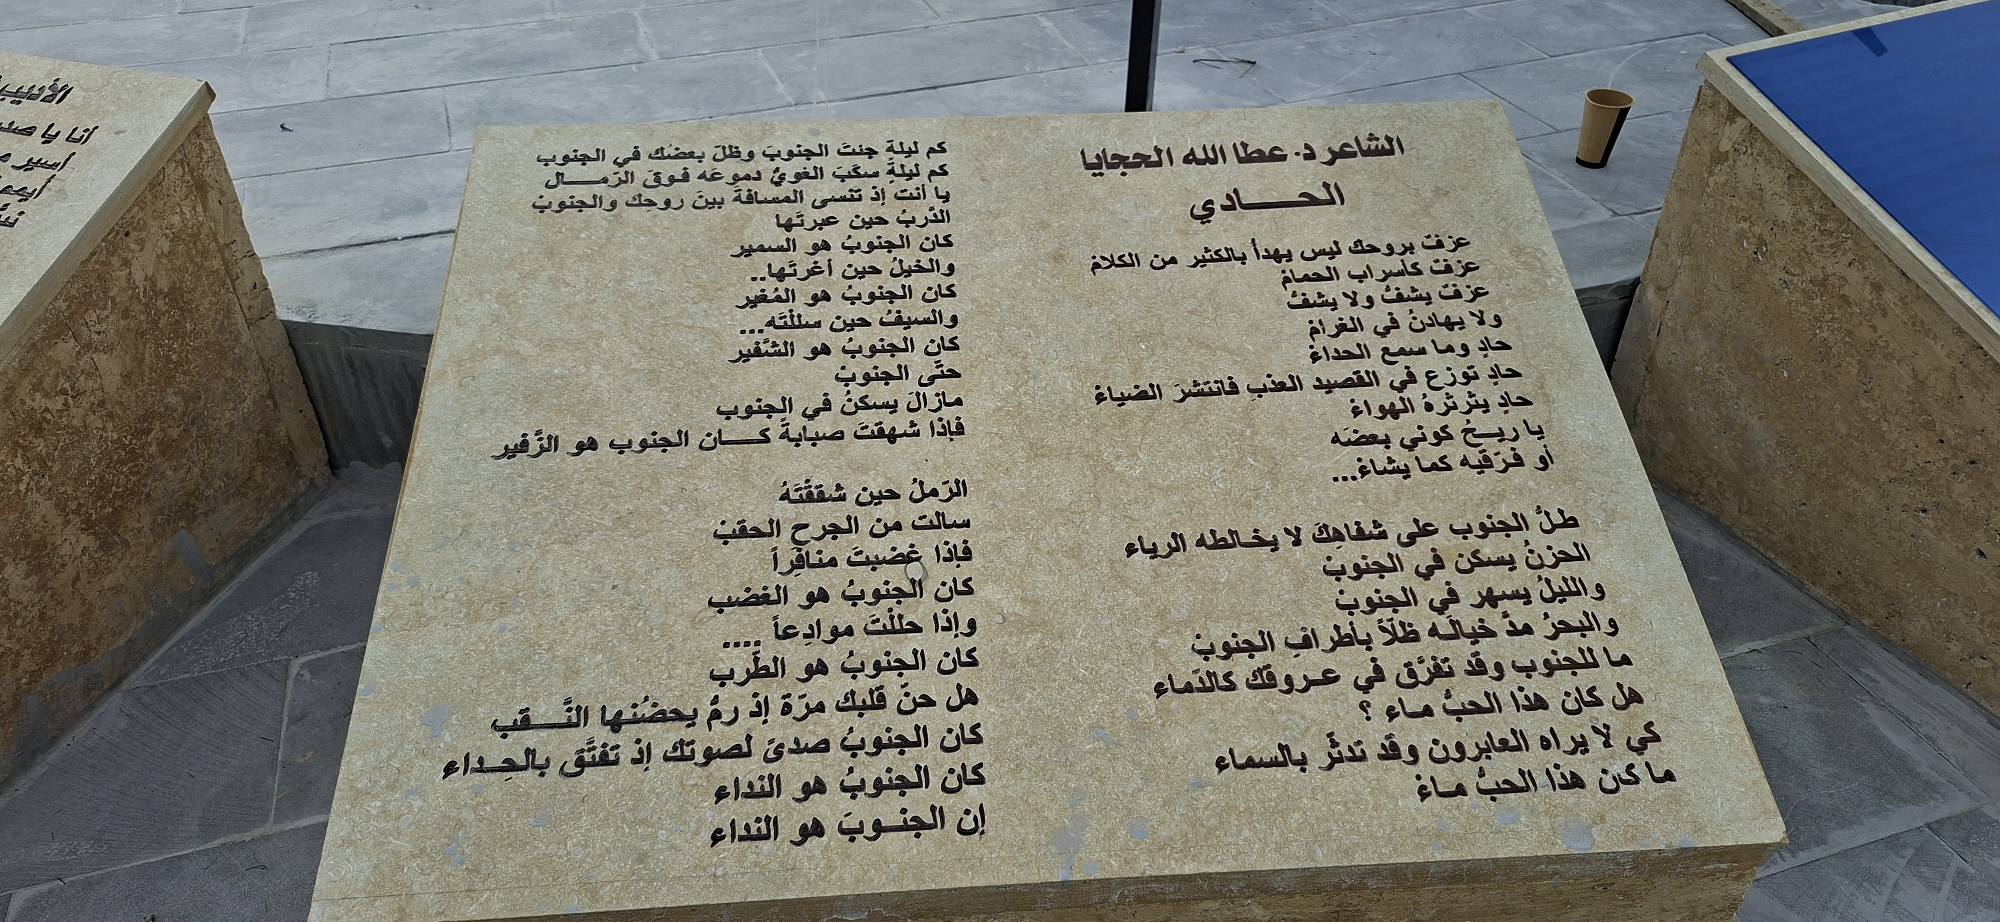 الشاعر د. عطا الله الحجايا
الحـــــادي
عزفٌ بروحك ليس يهدأ بالكثير من الكلامْ
عزفٌ كأسراب الحمامْ
عزفٌ يشفُّ ولا يشفُّ
ولا يهادنُ في الغرامْ
حادٍ وما سمع الحداءْ
حادٍ توزع في القصيد العذب فانتشرَ الضياءْ
حادٍ يثرثرهُ الهواءْ
يا ريـــحُ كوني بعضَه
أو فـرّقيه كما يشاءْ...
طـلُّ الجنوب على شفاهِكَ لا يخـالطه الرياء
الحزنُ يسكن في الجنوبْ
والليلُ يسهر في الجنوبْ
والبحرُ مدَّ خيالـه ظلّاً بأطرافِ الجنوبْ
ما للجنوب وقد تفرّق في عـروقك كالدّماء
هل كان هذا الحبُّ مـاء ؟
كي لا يراه العابرون وقد تدثّر بالسماء
ما كان هذا الحبُّ مـاءْ
كم ليلةٍ جئتَ الجنوبَ وظلّ بعضك في الجنوب
كم ليلةٍ سكَبَ الغويُّ دموعَه فـوقَ الرّمـــال
يا أنت إذ تنسى المسافةَ بينَ روحِك والجنوبْ
الدّربُ حين عبرتَها
كان الجنوبُ هو السمير
والخيلُ حين أغرتَها..
كان الجنوبُ هو المُغير
والسيفُ حين سللْتَه...
كان الجنوبُ هو الشَّفير
حتّى الجنوبْ
مازالَ يسكنُ في الجنوب
فإذا شهقتَ صبابةً كـــــان الجنوب هو الزَّفير
الرّملُ حين شققْتَهُ
سالت من الجرحِ الحقبْ
فإذا غضبتَ منافِراً
كان الجنوبُ هو الغضب
وإذا حللْتَ موادِعاً ....
كان الجنوبُ هو الطّرب
هل حنّ قلبك مرّة إذ رمُّ يحضُنها النَّـــــقب
كان الجنوبُ صدىً لصوتك إذ تفتَّق بالحِـداء
كان الجنوبُ هو النداء
إن الجنـوبَ هو النداء
أنا يا
أسير